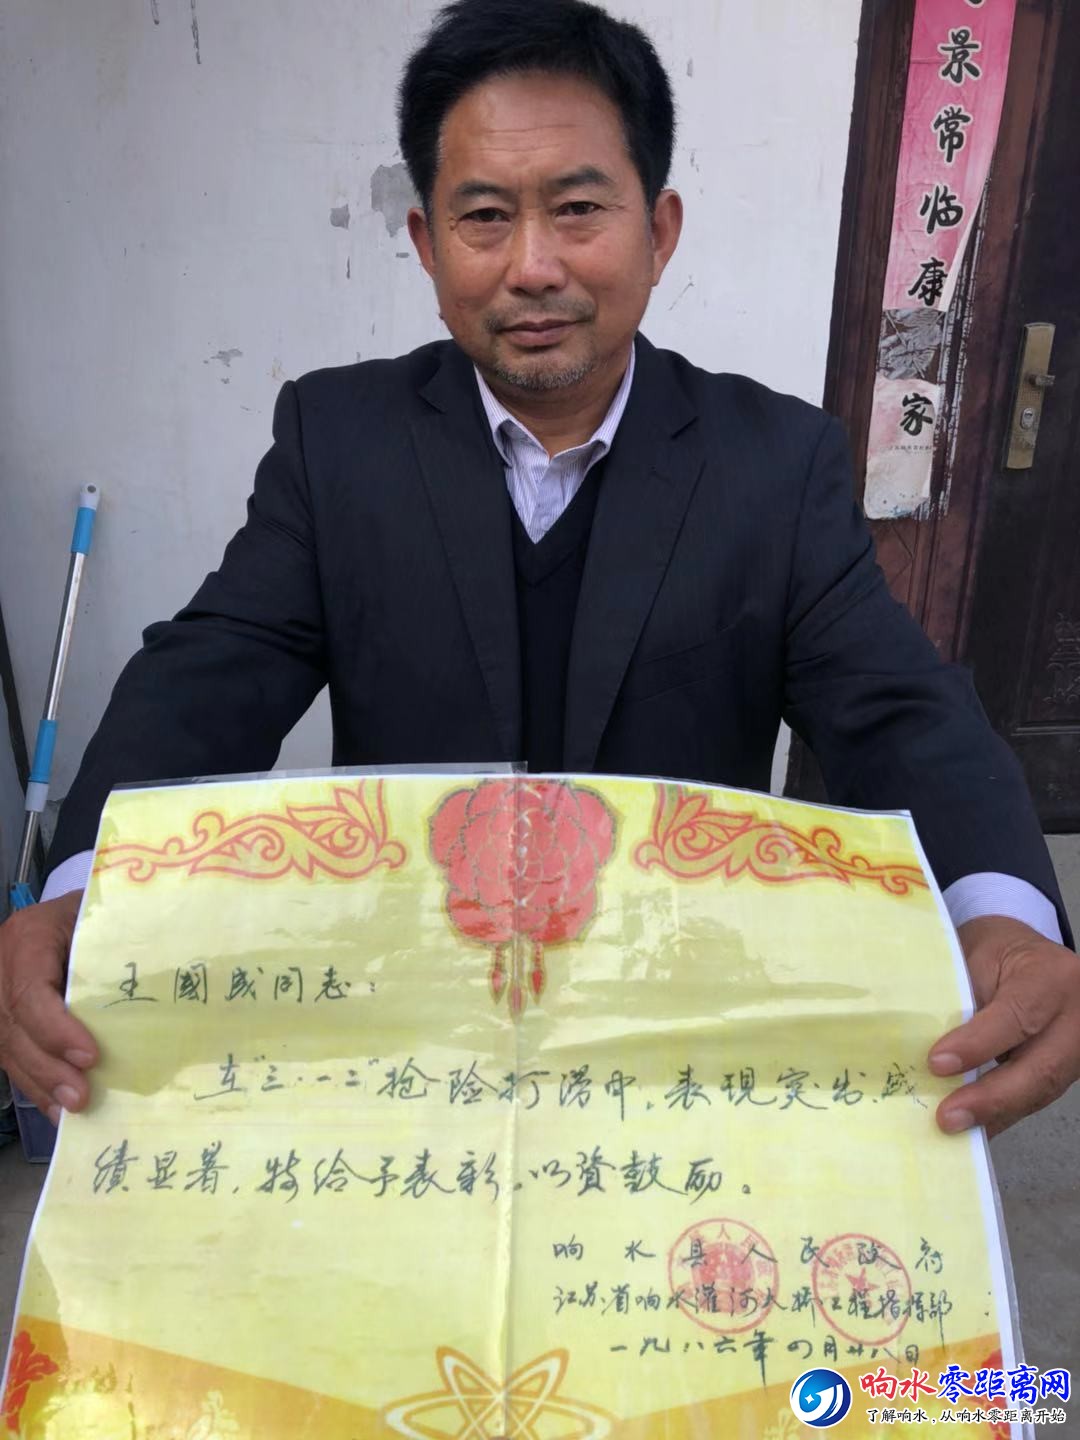 景常临康
家
王國成同志：
在“三·一二”抢险打捞中，表现突出，成
績显署，特给予表彰，以资鼓励。
响水县人民政府
江苏省响水灌河大桥工程指挥部
一九八六年四月廿八日
响水零距离网
了解响水，从响水零距离开始